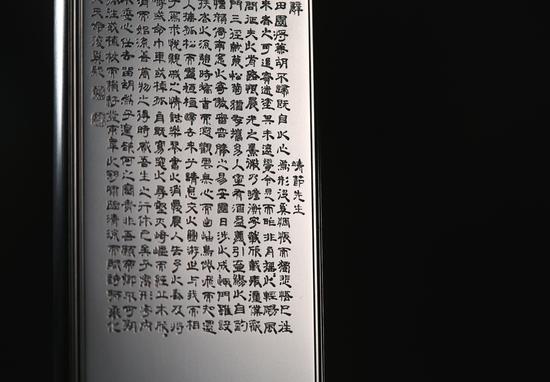 辭　靖節先生
田園將蕪胡不歸既自以心為形役奚惆悵而獨悲悟已往
來者之可追實迷塗其未遠覺今是而昨非舟搖以輕颺風
問征夫以前路恨晨光之熹微乃瞻衡宇載欣載奔僮僕歡
門三徑就荒松菊猶存攜幼入室有酒盈罇引壺觴以自酌
怡顏倚南窗以寄傲審容膝之易安園日涉以成趣門雖設
扶老以流憩時矯首而遐觀雲無心而出岫鳥倦飛而知還
入撫孤松而盤桓歸去來兮請息交以絕游世與我而相
焉求悅親戚之情話樂琴書以消憂農人告余以春及將
或命巾車或棹孤舟既窈窕以尋壑亦崎嶇而經丘木欣
涓而始流善萬物之得時感吾生之行休已矣乎寓形宇內
不委心任去留胡為乎遑遑欲何之富貴非吾願帝鄉不可期
往或植杖而耘耔登東皋以舒嘯臨清流而賦詩聊乘化
夫天命復奚疑